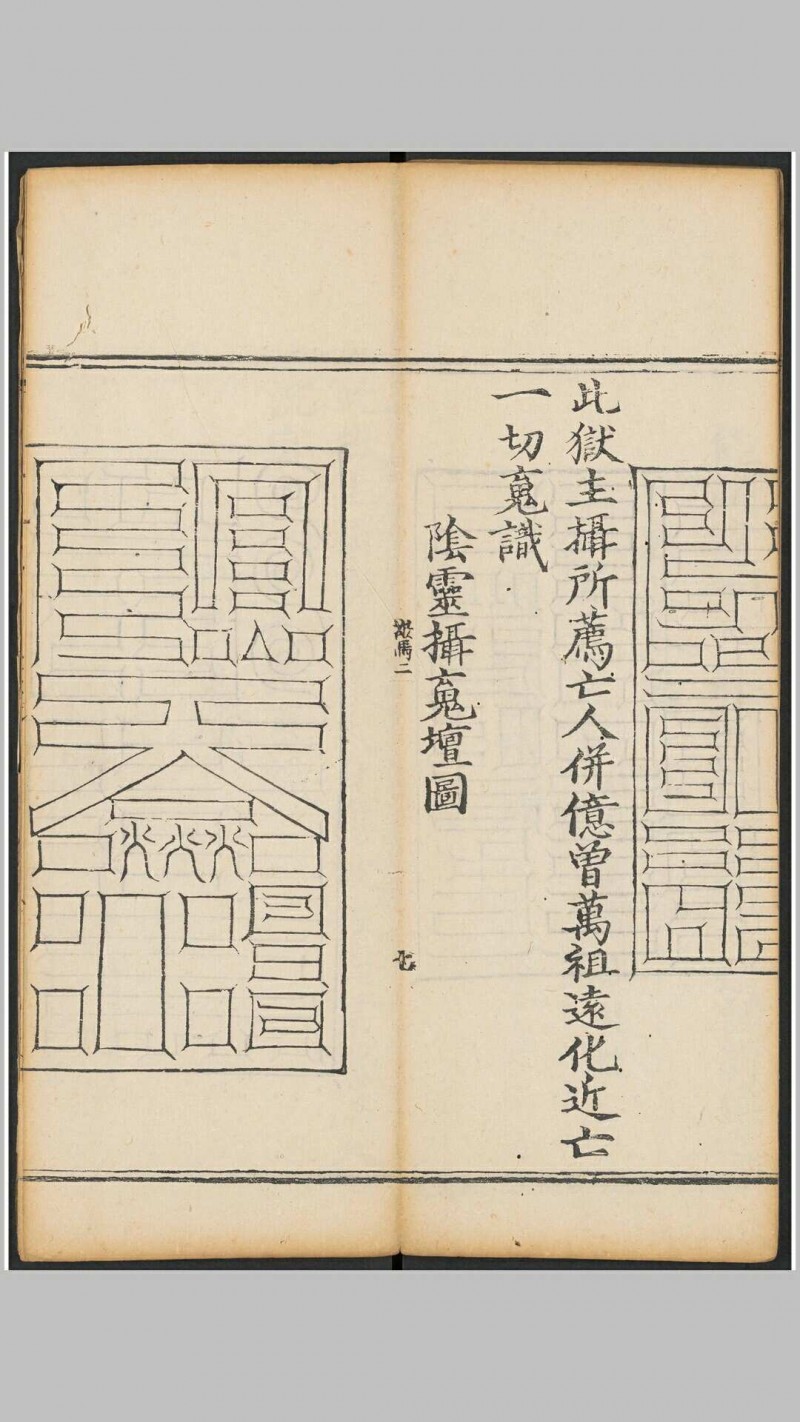 此獄主攝所薦亡人併億曾萬祖遠化近亡
一切䰟識
陰靈攝䰟壇圖
七